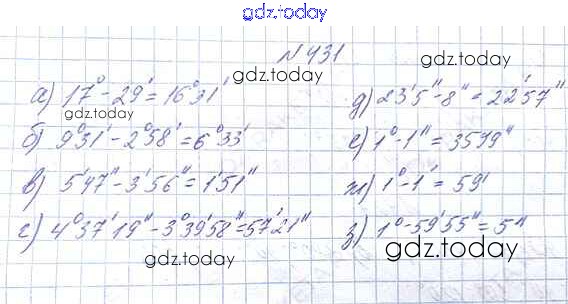 gdz.today
№ 431
gdz.today
gdz.today
а) 17° - 29' = 16°31'
gdz.today
б) 9°31' - 2°58' = 6°33'
в) 5'47" - 3'56" = 1'51"
г) 4°37'19" - 3°39'58" = 57'21"
д) 23'5" - 8" = 22'57"
е) 1° - 1" = 3599"
ж) 1° - 1' = 59'
з) 1° - 59'55" = 5"
gdz.today
gdz.today